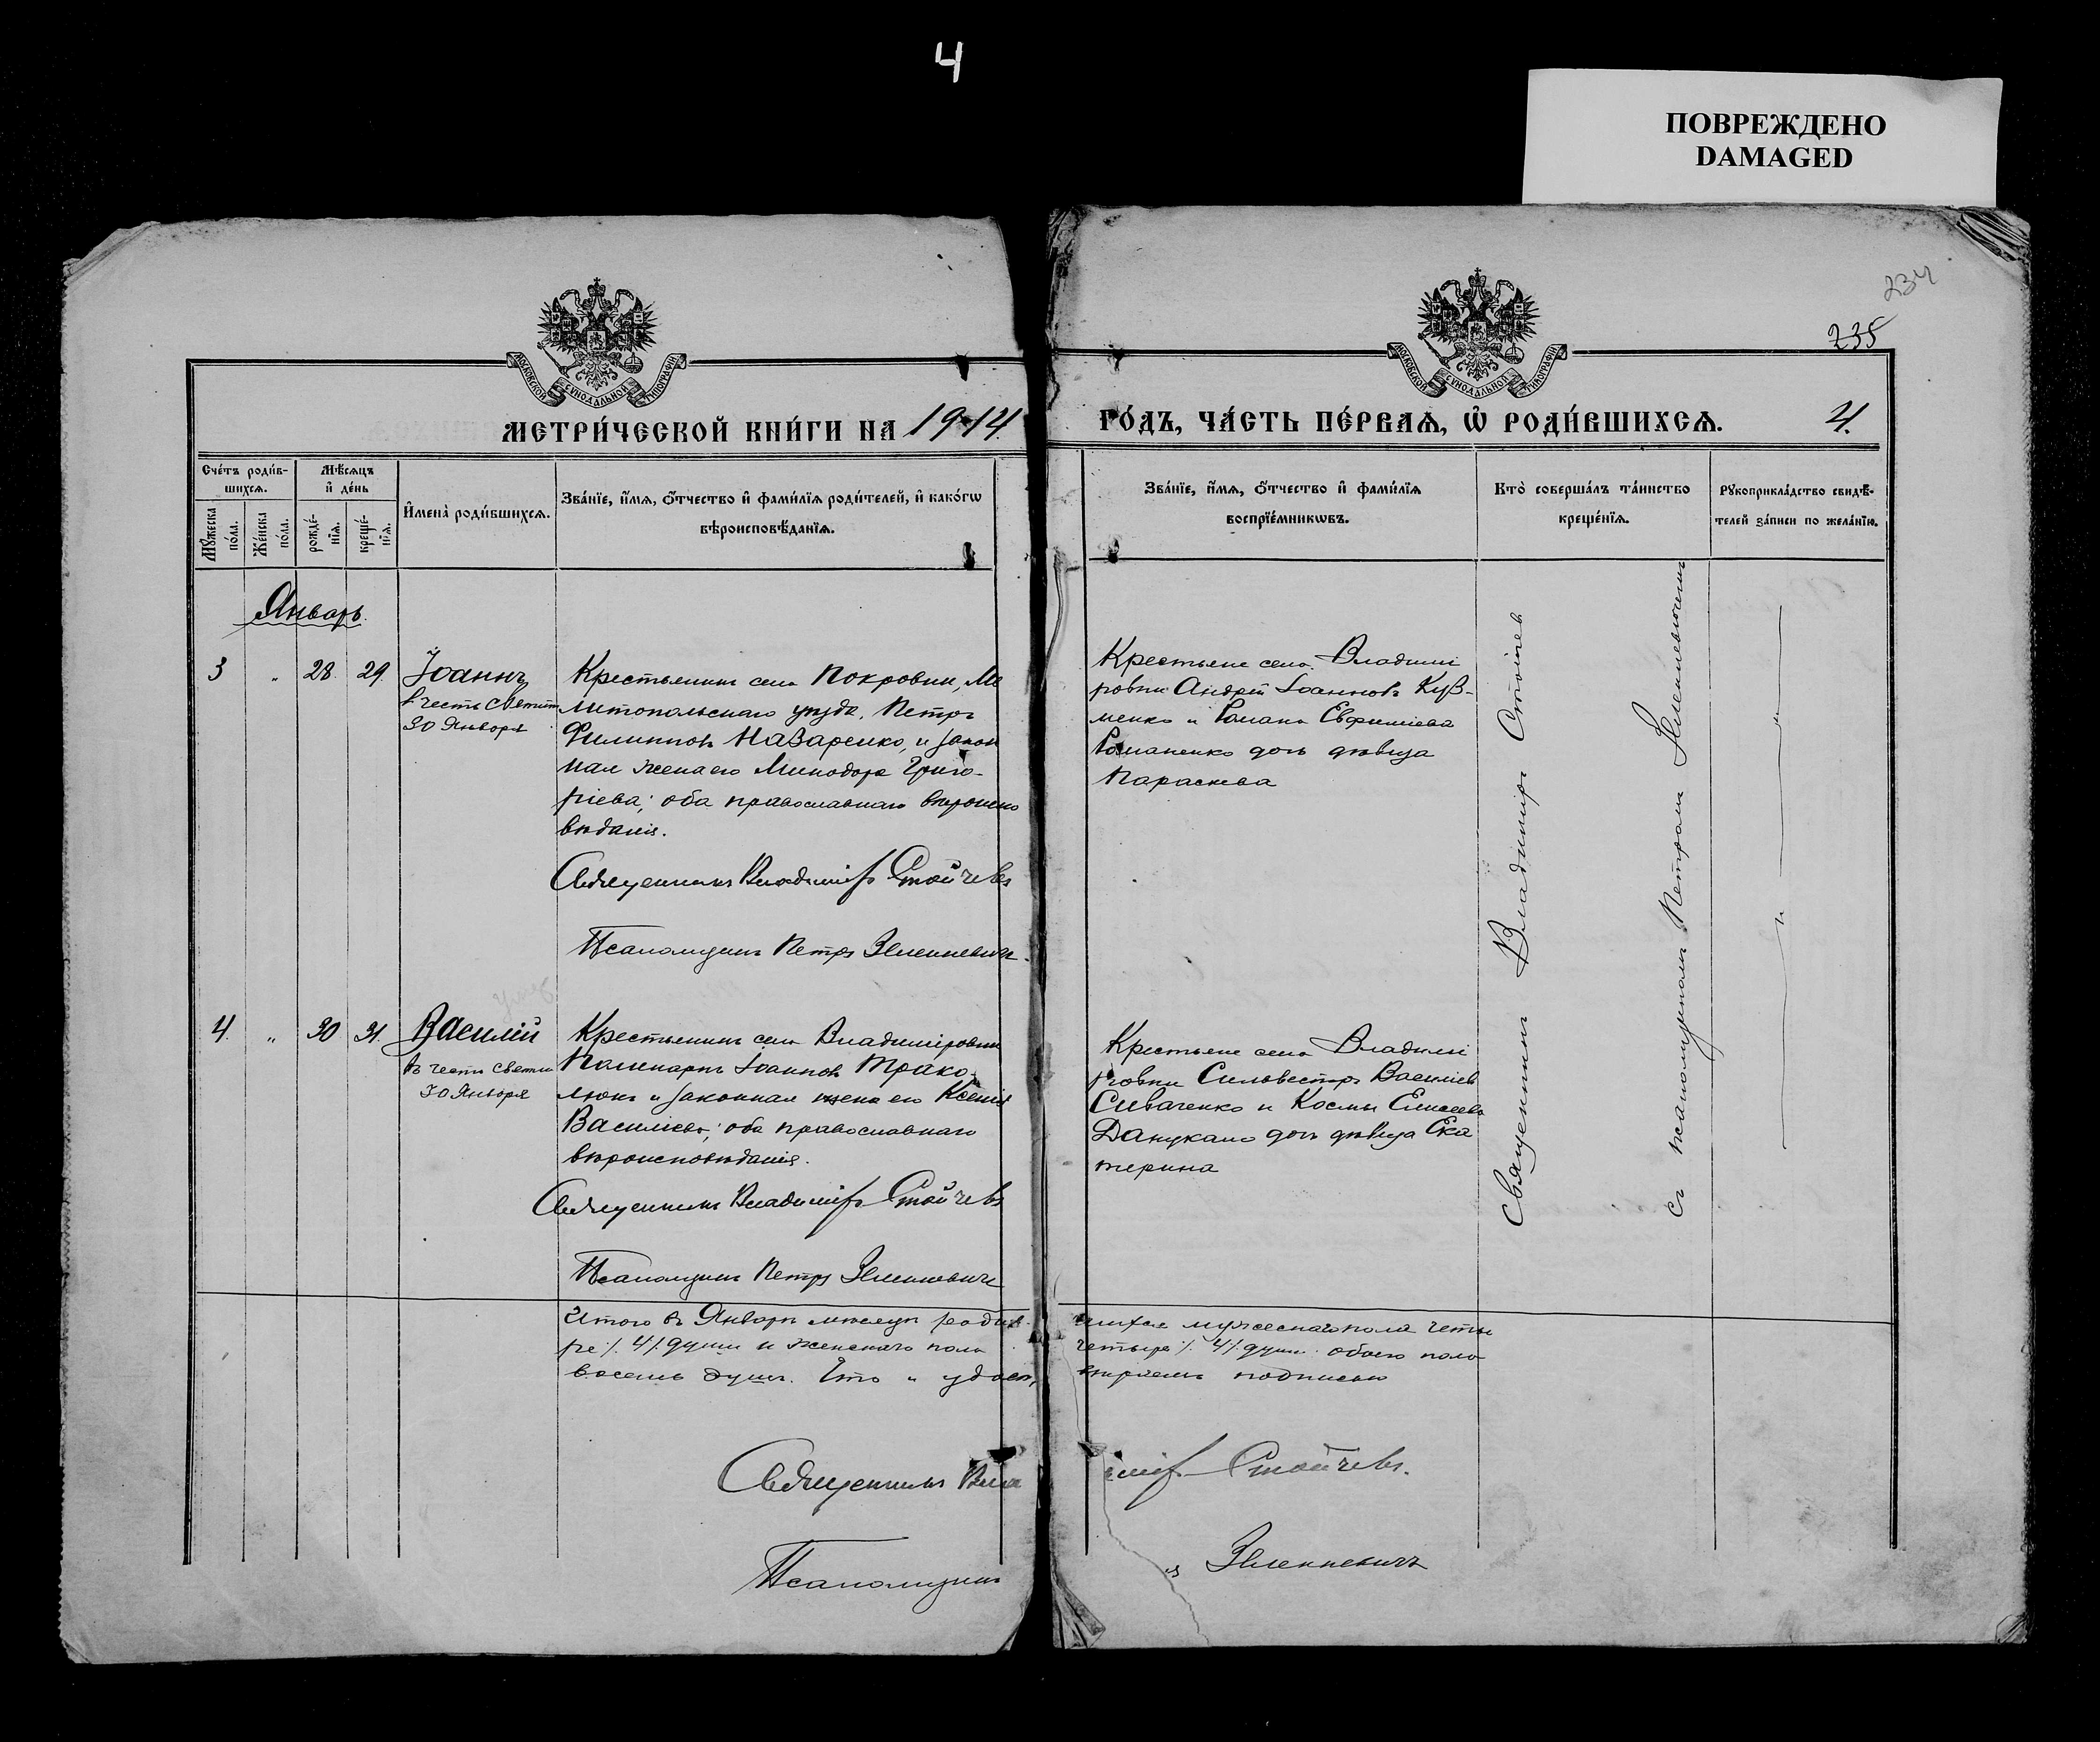 4
ПОВРЕЖДЕНО
DAMAGED
234
235
МОСКОВСКОЙ СѴНОДАЛЬНОЙ ТИПОГРАФІИ
МОСКОВСКОЙ СѴНОДАЛЬНОЙ ТИПОГРАФІИ
МЕТРИ́ЧЕСКОЙ КНИ́ГИ НА 1914
ГО́ДЪ, ЧА́СТЬ ПЕ́РВАѦ, Ѡ҆ РОДИ́ВШИХСѦ.
4.
Сче́тъ роди́в-
шихсѧ.
Мꙋ́жеска по́ла.
Же́нска по́ла.
Мѣ́сѧцъ
и҆ де́нь
рожде́-
нїѧ.
креще́-
нїѧ.
И҆мена̀ роди́вшихсѧ.
Зва́нїе, и҆́мѧ, ѻ҆́тчество и҆ фами́лїѧ роди́телей, и҆ како́гѡ
вѣроисповѣ́данїѧ.
Зва́нїе, и҆́мѧ, ѻ҆́тчество и҆ фами́лїѧ
воспрїе́мникѡвъ.
Кто̀ соверша́лъ та́инство
креще́нїѧ.
Рꙋкоприкла́дство свидѣ́-
телей за́писи по жела́нїю.
Январь.
3 " 28. 29. Іоаннъ
въ честь святит
30 Января
Крестьянинъ села Покровки, Ме
литопольскаго уѣзда, Петръ
Филипповъ Назаренко, и закон
ная жена его Минодора Григо-
ріева; оба православнаго вѣроиспо
вѣданія.
Священникъ Владиміръ Стойчевъ
Псаломщикъ Петръ Зеленкевичъ
Крестьяне села Владими
ровки Андрей Іоанновъ Куз-
менко и Романа Евфиміева
Романенко дочь дѣвица
Параскева
4. " 30 31. Василій
въ честь святит
30 Января
Крестьянинъ села Владиміровки
Іоанновъ
и законная жена его Ксенія
Васильева; оба православнаго
вѣроисповѣданія.
Священникъ Владиміръ Стойчевъ
Псаломщикъ Петръ Зеленкевичъ
Крестьяне села Владими
ровки Сильвестръ Васильевъ
Сиваченко и Космы Елисеева
дочь дѣвица Ека
терина
Священникъ Владиміръ Стойчев
съ псаломщикомъ Петромъ Зеленкевичемъ
Итого въ Январѣ мѣсяцѣ родив
шихся мужескаго пола четы
ре /. 4 /. души и женскаго пола
четыре /. 4 /. души. обоего пола
восемь душъ. Что и удосто
вѣряемъ подписью
Священникъ Вла
иміръ Стойчевъ.
Псаломщикъ
ъ Зеленкевичъ